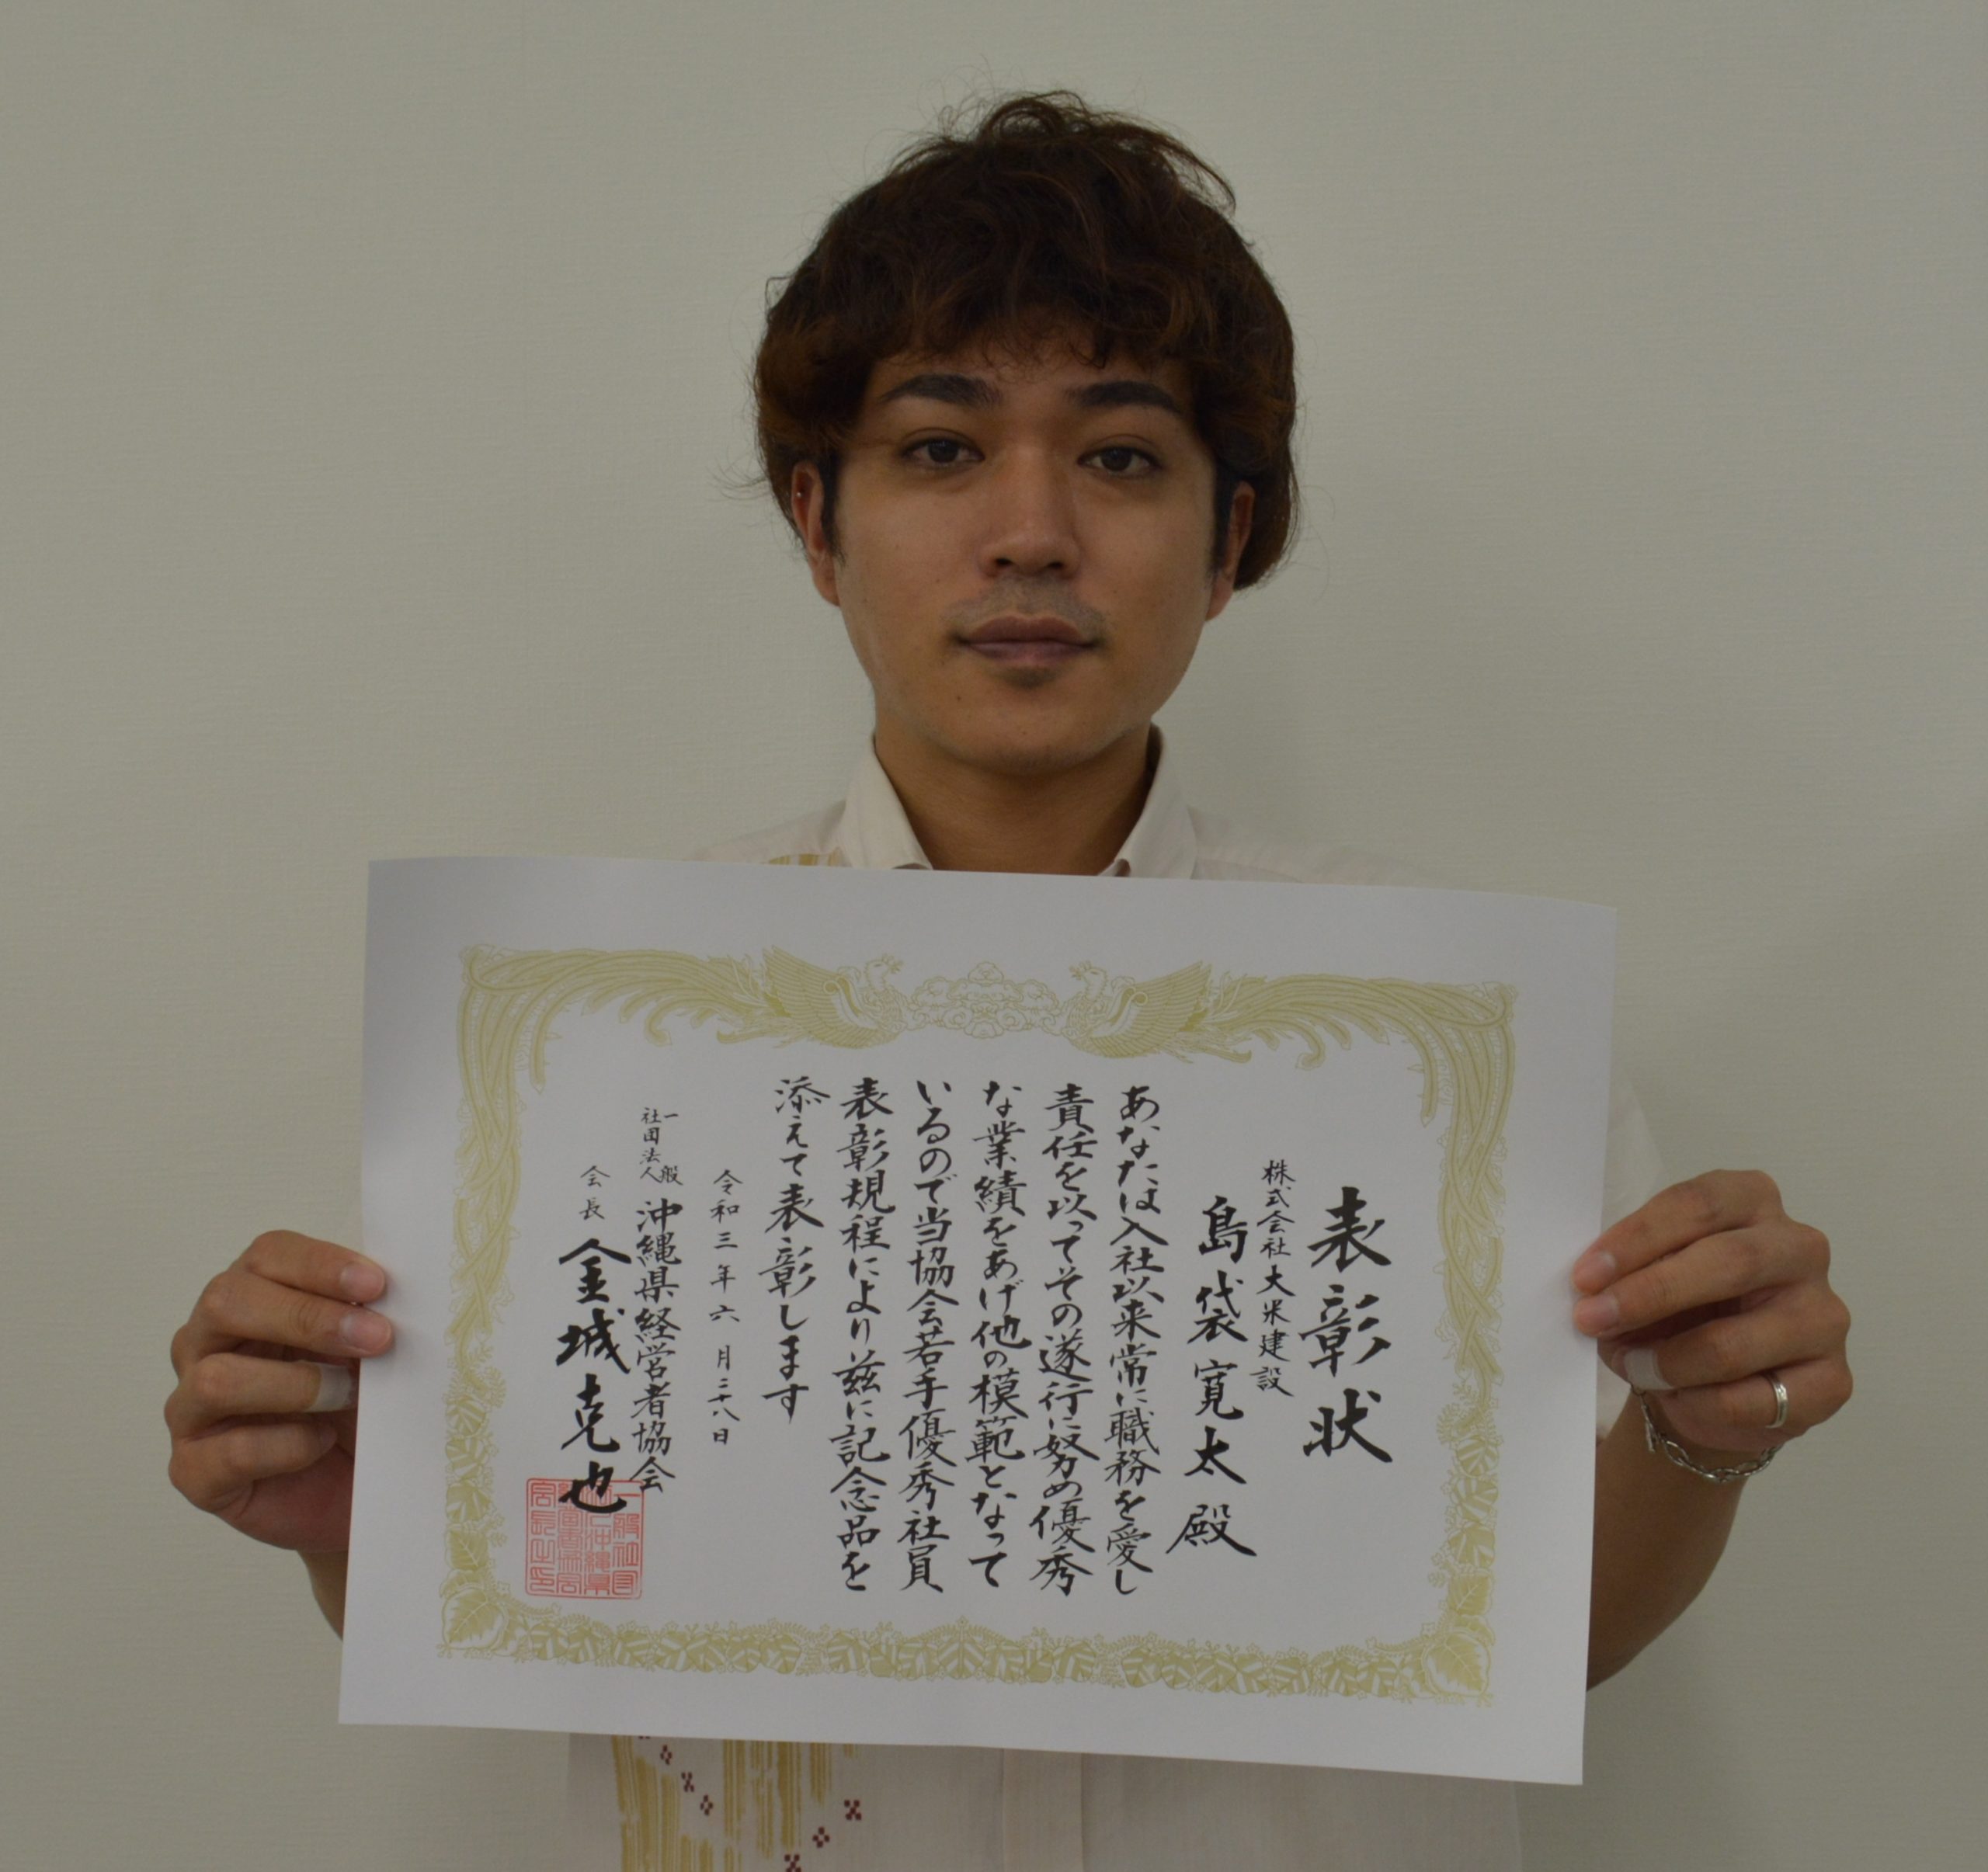 表彰状
株式会社大米建設
島袋寛太殿
あなたは入社以来常に職務を愛し
責任を以ってその遂行に努め優秀
な業績をあげ他の模範となって
いるので当協会若手優秀社員
表彰規程により茲に記念品を
添えて表彰します
令和三年六月二十八日
一般社団法人 沖縄県経営者協会
会長 金城克也